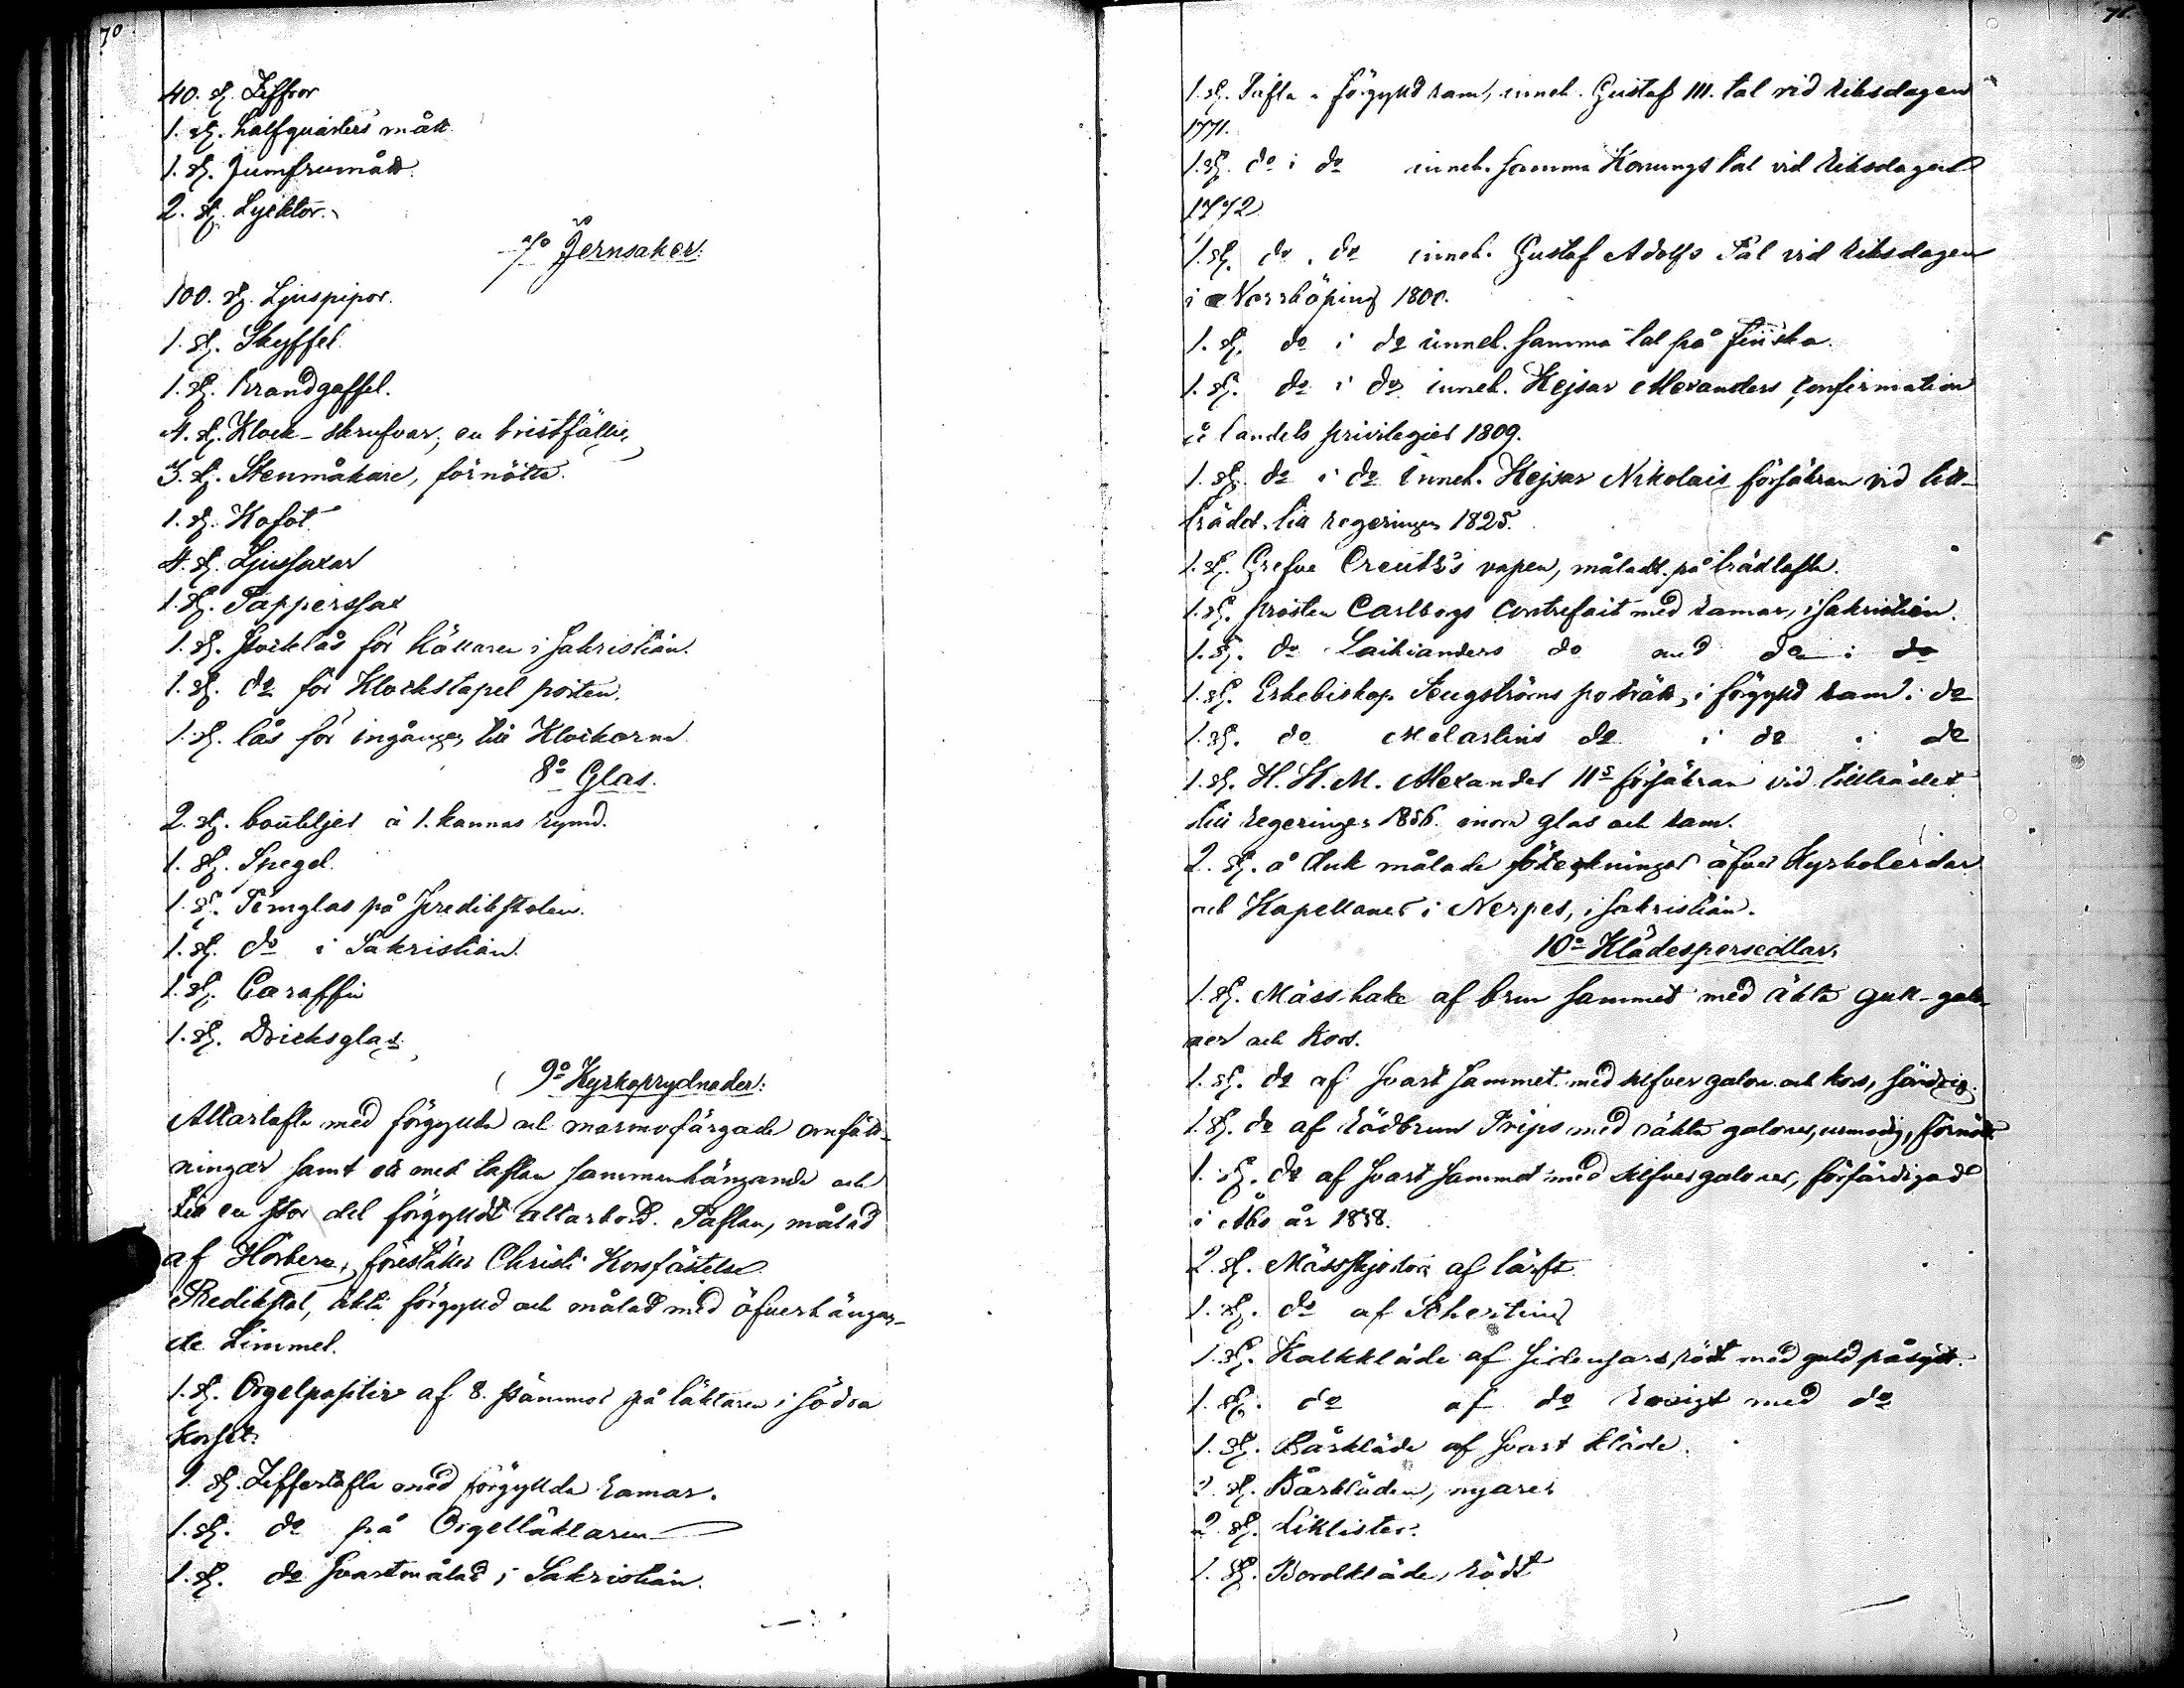 70
40. st. Ziffror
1. st. halfquarters mått.
1. st. Jumfrumått.
2. st. Lycktor.
7o Jernsaker:
100. st. Ljuspipor.
1. st. Skyffel.
1. st. Brandgaffel.
4. st. Klock-skrufvar, en bristfällig
3. st. Stenmåkare, förnötta.
1. st. Kofot
4. st. Ljussaxar
1. st. Papperssax
1. st. Stocklås för Källaren i Sakristian.
1. st. do för Klockstapel porten.
1. st. lås för ingången till Klockorna
8o Glas.
2. st. bouteljer à 1. kannas rymd.
1. st. Spegel.
1. st. Timglas på Predikstolen.
1. st. do i Sakristian.
1. st. Caraffin
1. st. Dricksglas.
9o Kyrkoprydnader:
Altartafla med förgyllda och marmofärgade omfatt-
ningar samt ett med taflan sammanhängande och
till en stor del förgylldt altarbord. Taflan, målad
af Hörberg, föreställer Christi Korsfästelse
Predikstol, äkta förgylld och målad med öfverhängan-
de himmel.
1. st. Orgelpositiv af 8. stämmor på läktaren i södra
Korset.
1 st. Ziffertafla med förgyllda ramar.
1. st. do på Orgelläktaren
1. st. do Svartmålad i Sakristian.
71.
1. st. Tafla i förgylld ram, inneh. Gustaf III. tal vid Riksdagen
1771.
1. st. do i do inneh. samma Konungs tal vid Riksdagen
1772
1. st. do i do inneh. Gustaf Adolfs Tal vid Riksdagen
i Norrköping 1800.
1. st. do i do inneh. samma tal på finska.
1. st. do i do inneh. Kejsar Alexanders Confirmation
å landets privilegier 1809.
1. st. do i do inneh. Kejsar Nikolais försäkran vid till-
trädet till regeringen 1825.
1. st. Grefve Creutz's vapen, måladt på trädtafla.
1. st. prosten Carlborgs Contrefait med ramar, i Sakristian.
1. st. do Laihianders do med do i do
1. st. Erkebiskop Tengströms porträtt, i förgylld ram i do
1. st. do Melartins do i do i do
1. st. H. K. M. Alexander IIs försäkran vid tillträdet
till regeringen 1856. inom glas och ram.
2. st. å duk målade förteckningar öfver Kyrkoherdar
och Kapellaner i Nerpes, i sakristian.
10o Klädespersedlar.
1. st. Mässhake af brun sammet med äkta gull-galo-
ner och kors.
1. st. do af svart sammet med silfver galon och kors, söndrig.
1. st. do af rödbrun Trips med oäkta galoner, urmodig, förnött
1. st. do af svart sammet med silfver galoner, förfärdigad
i Åbo år 1838.
2. st. Mässskjortor af lärft
1. st. do af Scherting
1. st. Kalkkläde af sidensars, rödt med guld påsydt.
1. st. do af do brokigt med do
1. st. Bårkläde af svart kläde.
2 st. Bårkläden, nyare
2 st. Liklister.
1. st. Bordkläde, rödt